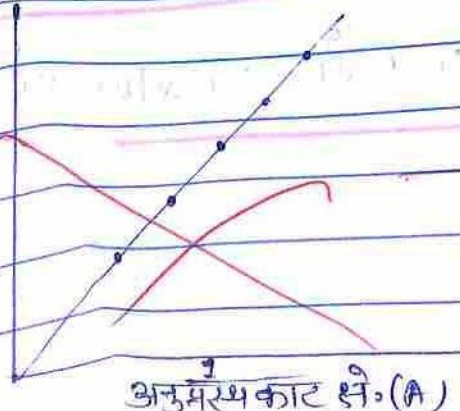 अनुप्रस्थ काट क्षे॰ (A)